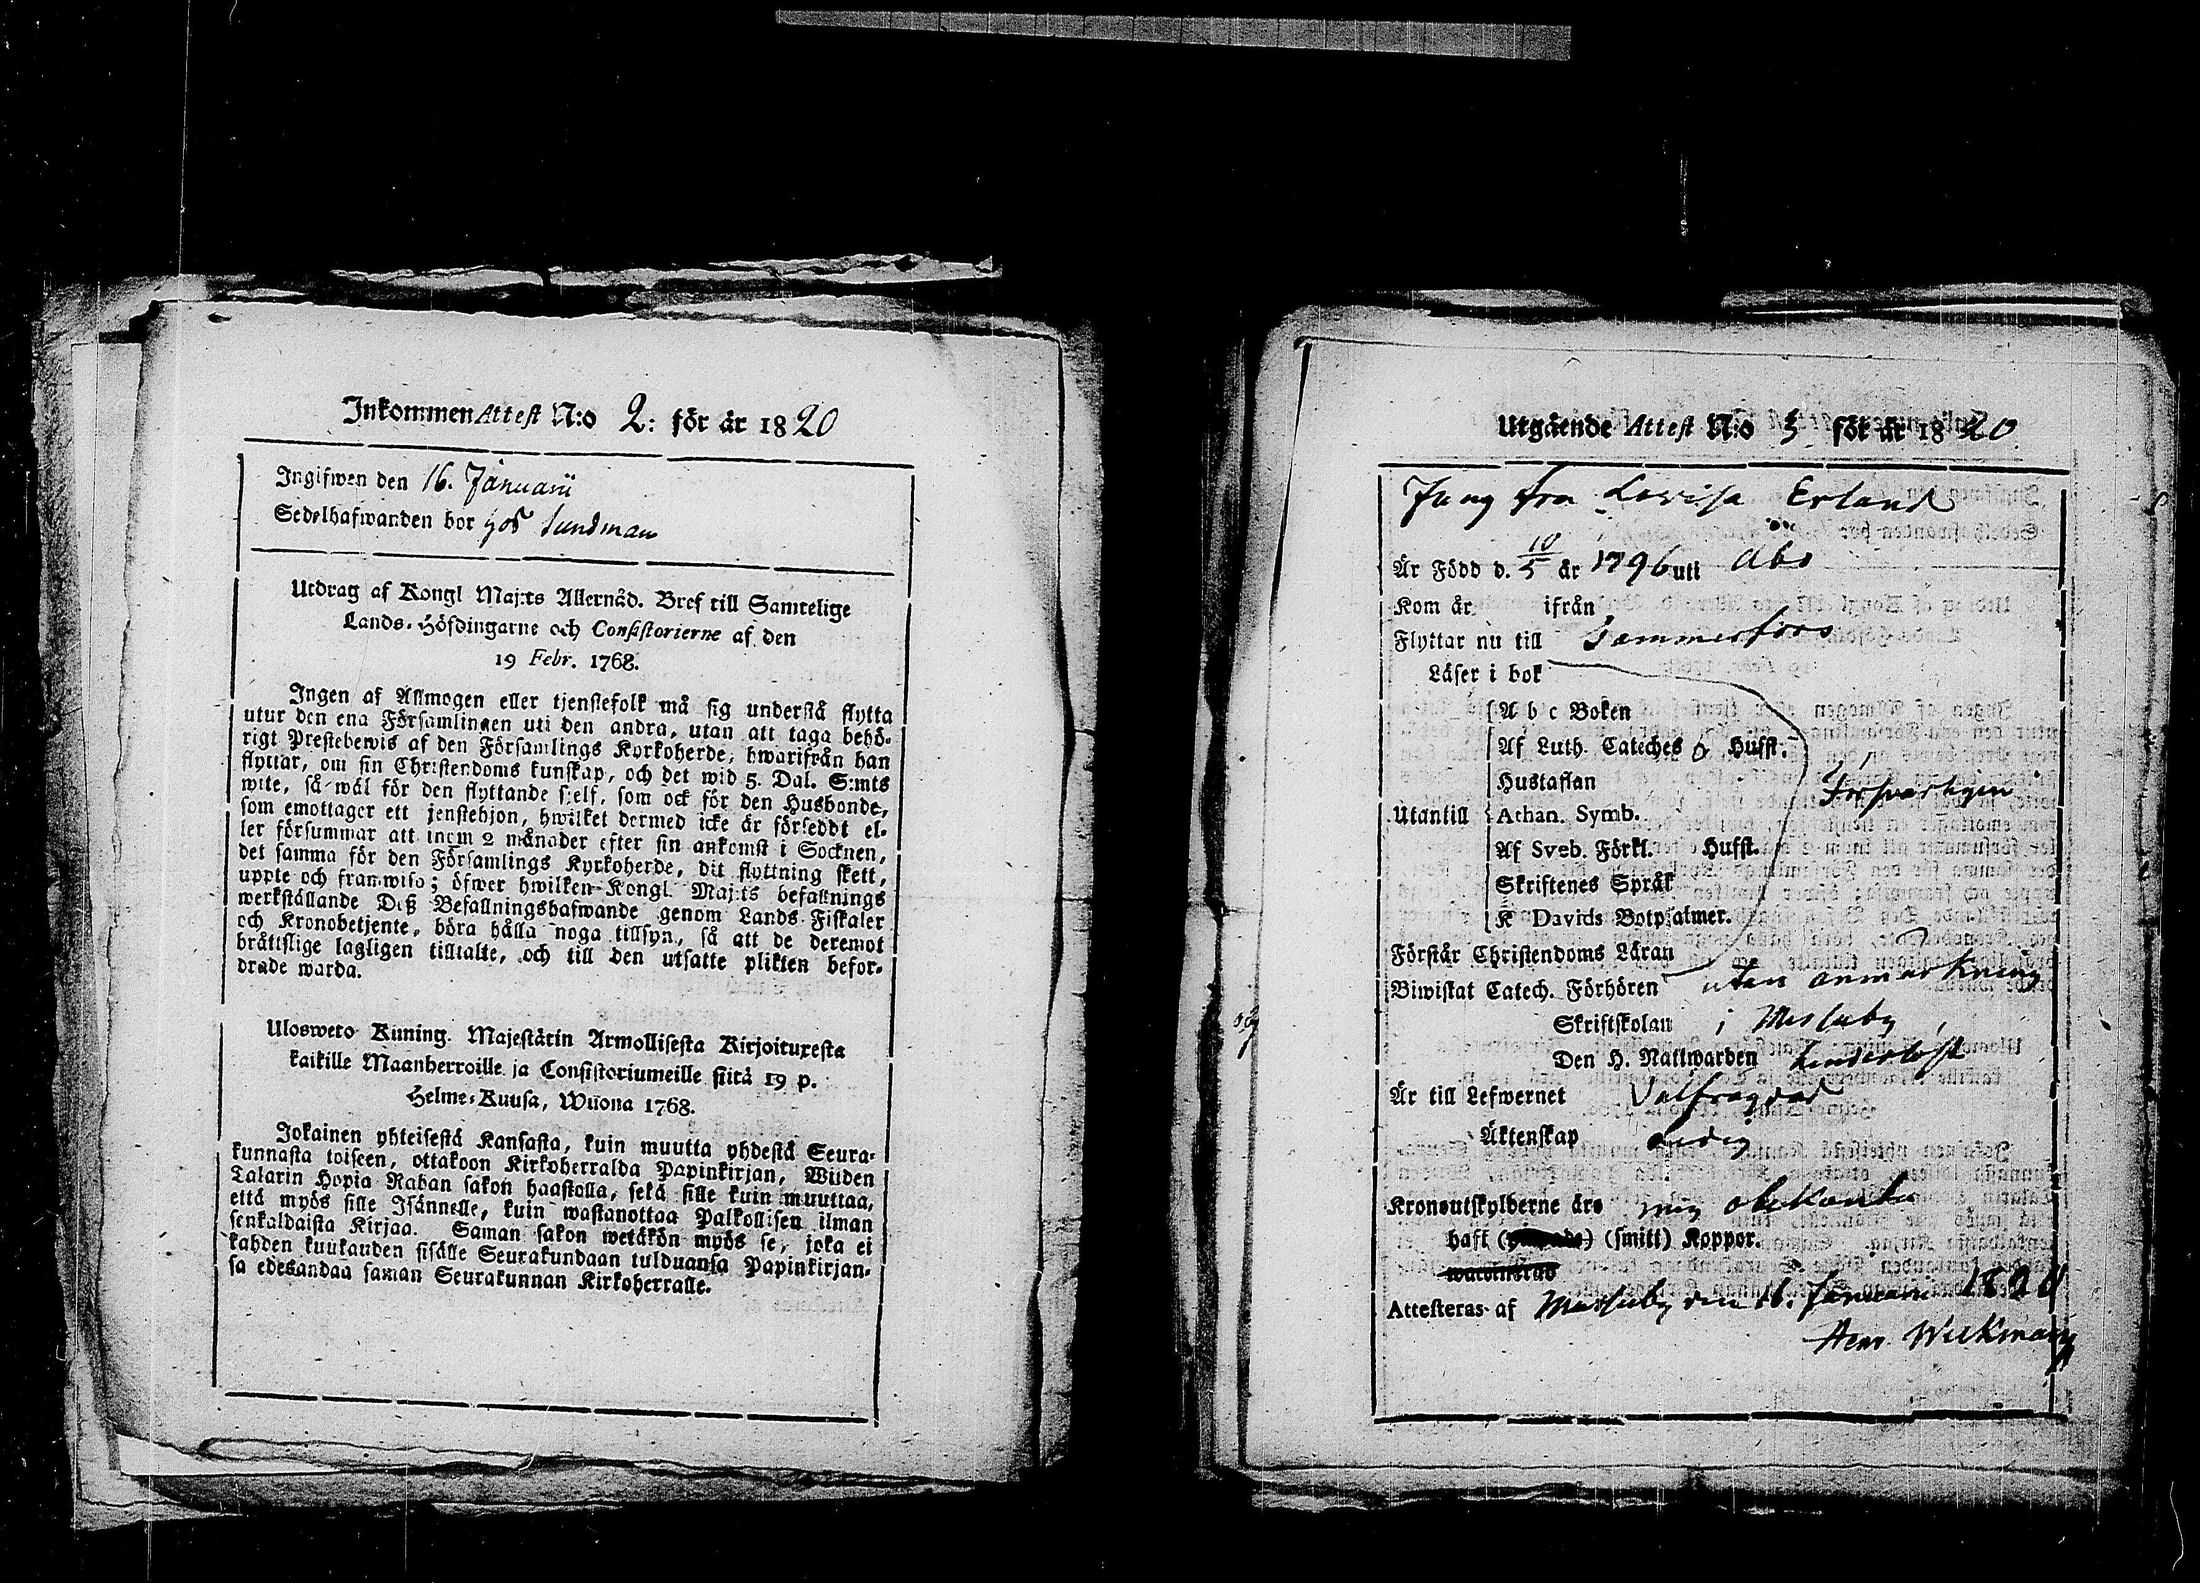 Inkommen Attest N:o 2: för år 1820
Ingifwen den 16. Januarii
Sedelhafwanden bor hos Sundman
Utdrag af Kongl Maj:ts Allernåd. Bref till Samtelige
Lands-Höfdingarne och Consistorierne af den
19 Febr. 1768.
Ingen af Allmogen eller tjenstefolk må sig understå flytta
utur den ena Församlingen uti den andra, utan att taga behö-
rigt Prestebewis af den Församlings Kyrkoherde, hwarifrån han
flyttar, om sin Christendoms kunskap, och det wid 5. Dal. S:mts
wite, så wäl för den flyttande sjelf, som ock för den Husbonde,
som emottager ett jenstehjon, hwilket dermed icke är försedt el-
ler försummar att inom 2 månader efter sin ankomst i Socknen,
det samma för den Församlings Kyrkoherde, dit flyttning skett,
uppte och framwisa; öfwer hwilken Kongl. Maj:ts befallnings
werkställande Deß Befallningshafwande genom Lands-Fiskaler
och Kronobetjente, böra hålla noga tillsyn, så att de deremot
bråttslige lagligen tilltalte, och till den utsatte plikten befor-
drade warda.
Ulosweto Kuning. Majestätin Armollisesta Kirjoituxesta
kaikille Maanherroille ja Consistoriumeille siitä 19 p.
Helme-Kuusa, Wuona 1768.
Jokainen yhteisestä Kansasta, kuin muutta yhdestä Seura-
kunnasta toiseen, ottakoon Kirkoherralda Papinkirjan, Wiiden
Talarin Hopia Rahan sakon haastolla, sekä sille kuin muuttaa,
että myös sille Isännelle, kuin wastanottaa Palkollisen ilman
senkaldaista Kirjaa. Saman sakon wetäkön myös se, joka ei
kahden kuukauden sisälle Seurakundaan tulduansa Papinkirjan-
sa edesandaa saman Seurakunnan Kirkoherralle.
Utgående Attest N:o 3 för år 1820
Jungfru Lovisa Erland
Är Född d. 10/5 år 1796 uti Åbo
Kom år ifrån
Flyttar nu till Tammerfors
Läser i bok
A b c Boken
Af Luth. Cateches o Husst.
Hustaflan
Försvarligen
Utantill Athan. Symb.
Af Sveb. Förkl. Husst.
Skriftenes Språk
K Davids Botpsalmer.
Förstår Christendoms Läran
Biwistat Catech. Förhören utan anmärkning
Skriftskolan i Messuby
Den H. Nattwarden
Är till Lefwernet Välfrägdad
Äktenskap Ledig
Kronoutskylderne äro mig obekanta
haft (smitt) Koppor.
Attesteras af Messuby den 16. Januari 1820
Henr. Wickman